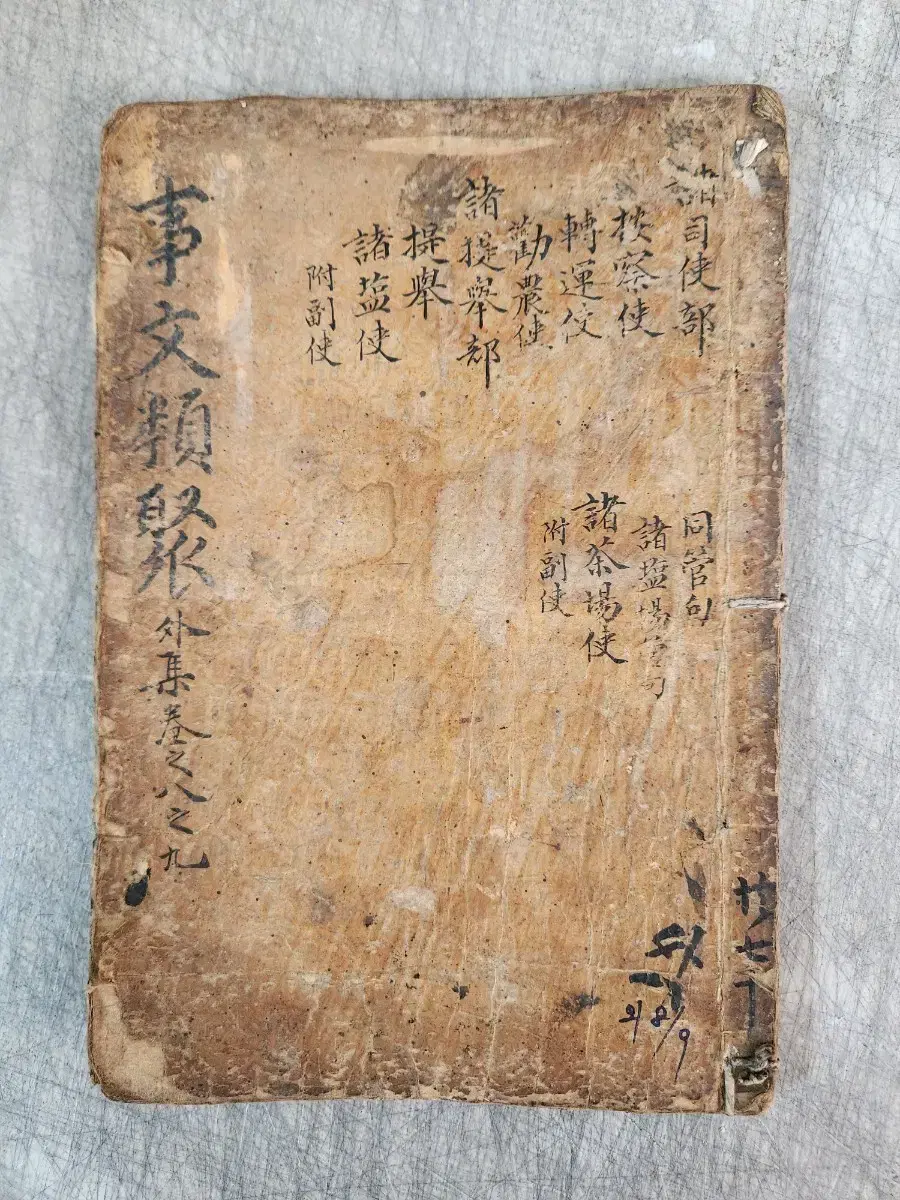 諸司使部
按察使
轉運使
勸農使
諸提舉部
提舉
諸盐使
附副使
同管勾
諸盐場管勾
諸茶場使
附副使
事文類聚 外集 卷之八之九
외 8/9